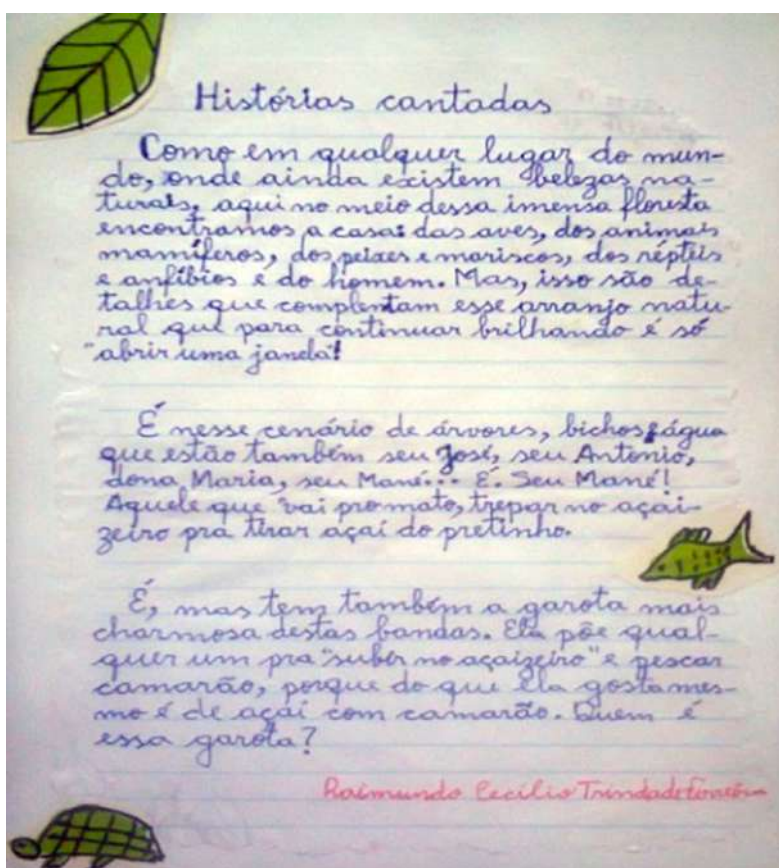 Histórias cantadas
Como em qualquer lugar do mun-
do, onde ainda existem belezas na-
turais, aqui no meio dessa imensa floresta
encontramos a casa das aves, dos animais
mamíferos, dos peixes e mariscos, dos répteis
e anfíbios e do homem. Mas, isso são de-
talhes que complentam esse arranjo natu-
ral que para continuar brilhando é só
"abrir uma janela"!
É nesse cenário de árvores, bichos, água
que estão também seu José, seu Antonio,
dona Maria, seu Mané... É. Seu Mané!
Aquele que "vai pro mato, trepar no açai-
zeiro pra tirar açaí do pretinho.
É, mas tem também a garota mais
charmosa destas bandas. Ela põe qual-
quer um pra "subir no açaizeiro" e pescar
camarão, porque do que ela gosta mes-
mo é de açaí com camarão. Quem é
essa garota?
Raimundo Cecílio Trindade